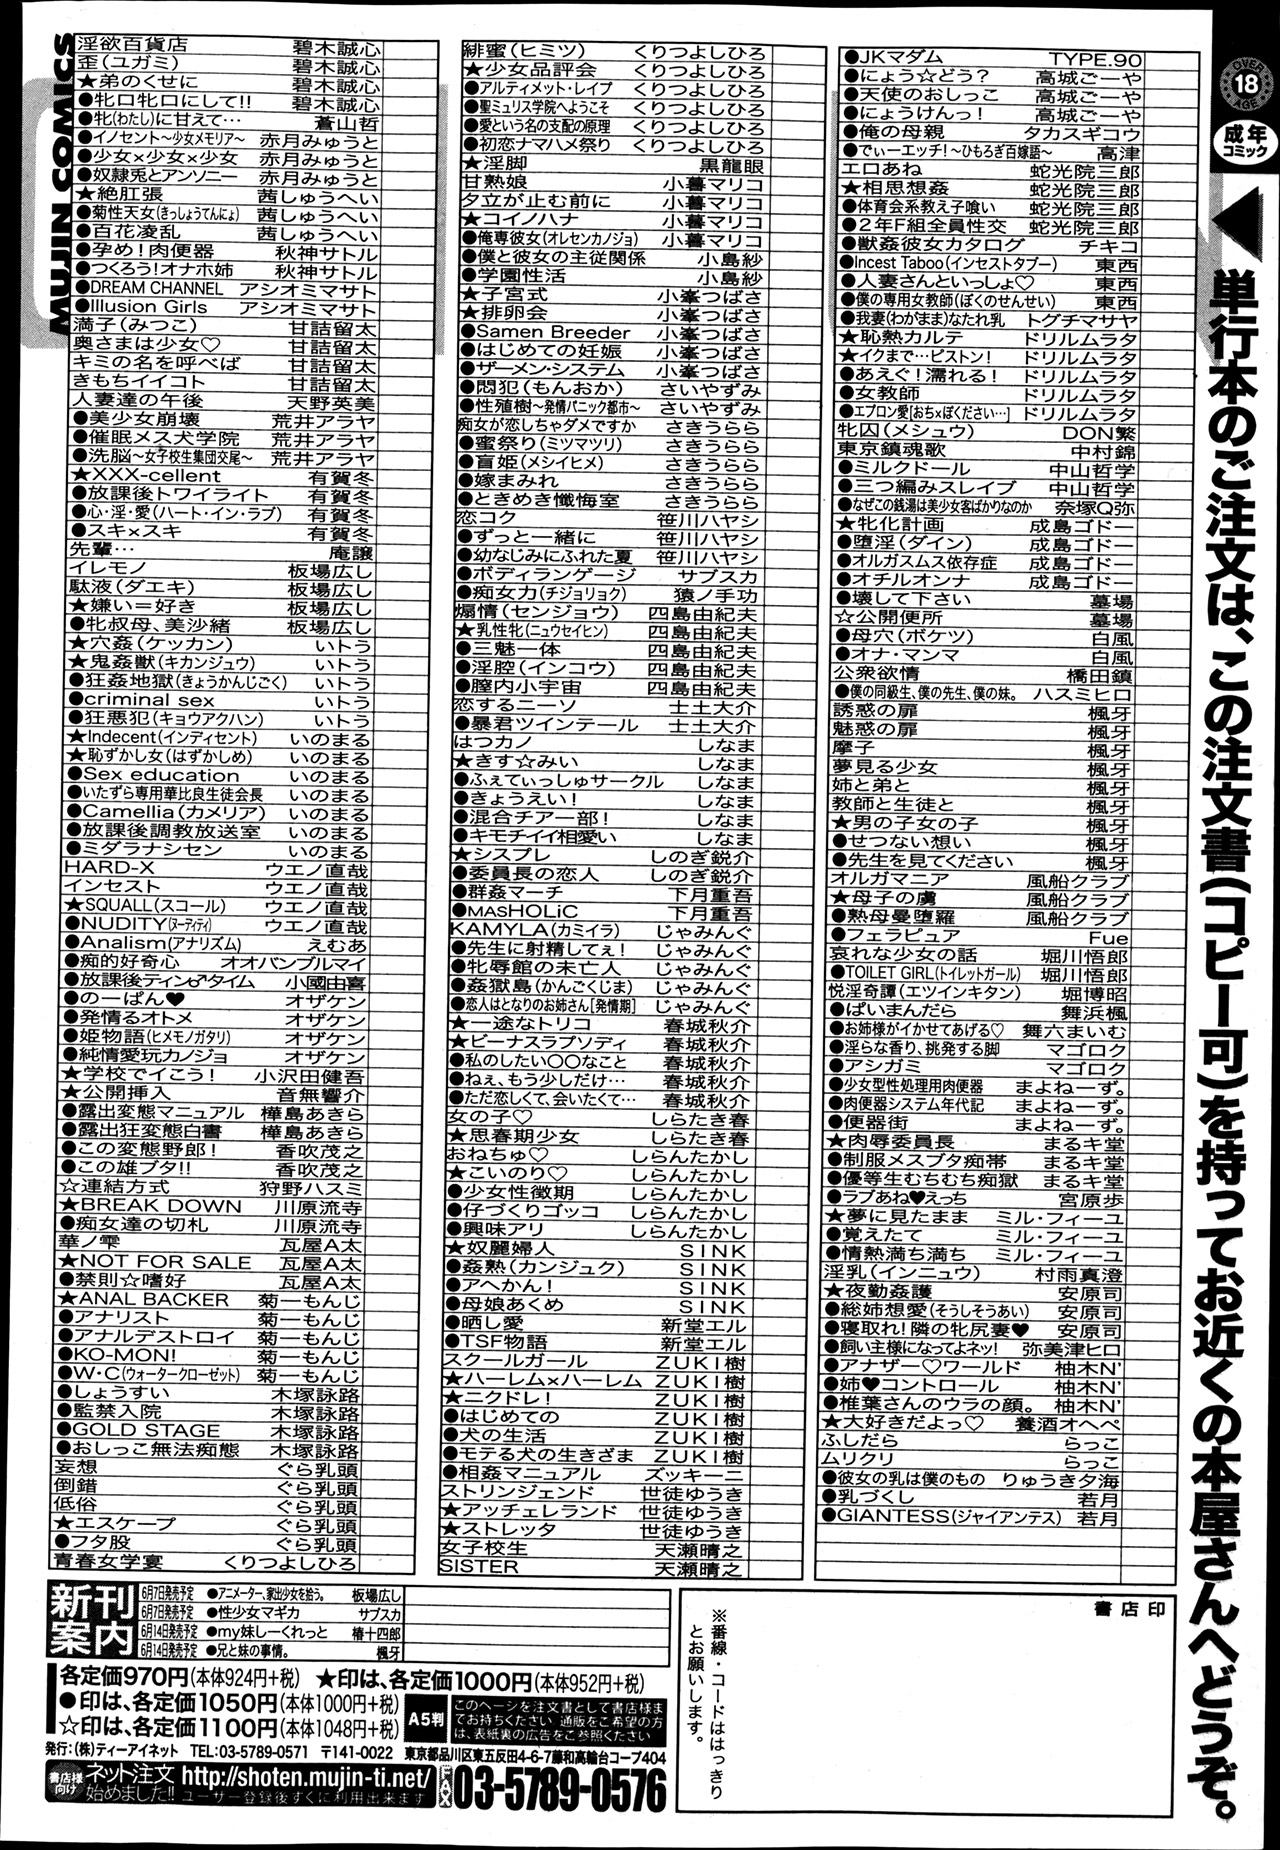 MUJIN COMICS
OVER 18 AGE
成年コミック
単行本のご注文は、この注文書(コピー可)を持ってお近くの本屋さんへどうぞ。
淫欲百貨店 碧木誠心
歪(ユガミ) 碧木誠心
★弟のくせに 碧木誠心
●牝口牝口にして!! 碧木誠心
●牝(わたし)に甘えて… 蒼山哲
●イノセント～少女メモリア～ 赤月みゅうと
●少女×少女×少女 赤月みゅうと
●奴隷兎とアンソニー 赤月みゅうと
★絶肛張 茜しゅうへい
●菊性天女(きっしょうてんにょ) 茜しゅうへい
●百花凌乱 茜しゅうへい
●孕め!肉便器 秋神サトル
●つくろう!オナホ姉 秋神サトル
●DREAM CHANNEL アシオミマサト
●Illusion Girls アシオミマサト
満子(みつこ) 甘詰留太
奥さまは少女♡ 甘詰留太
キミの名を呼べば 甘詰留太
きもちイイコト 甘詰留太
人妻達の午後 天野英美
●美少女崩壊 荒井アラヤ
●催眠メス犬学院 荒井アラヤ
●洗脳～女子校生集団交尾～ 荒井アラヤ
★XXX-cellent 有賀冬
●放課後トワイライト 有賀冬
●心・淫・愛(ハート・イン・ラブ) 有賀冬
●スキ×スキ 有賀冬
先輩… 庵譲
イレモノ 板場広し
駄液(ダエキ) 板場広し
★嫌い＝好き 板場広し
●牝叔母、美沙緒 板場広し
★穴姦(ケッカン) いトう
★鬼姦獣(キカンジュウ) いトう
●狂姦地獄(きょうかんじごく) いトう
●criminal sex いトう
●狂悪犯(キョウアクハン) いトう
★Indecent(インディセント) いのまる
★恥ずかし女(はずかしめ) いのまる
●Sex education いのまる
●いたずら専用華比良生徒会長 いのまる
●Camellia(カメリア) いのまる
●放課後調教放送室 いのまる
●ミダラナシセン いのまる
HARD-X ウエノ直哉
インセスト ウエノ直哉
★SQUALL(スコール) ウエノ直哉
●NUDITY(ヌーディティ) ウエノ直哉
●Analism(アナリズム) えむあ
●痴的好奇心 オオバンブルマイ
●放課後ティン♂タイム 小國由喜
●のーぱん♥ オザケン
●発情るオトメ オザケン
●姫物語(ヒメモノガタリ) オザケン
●純情愛玩カノジョ オザケン
★学校でイこう! 小沢田健吾
★公開挿入 音無響介
●露出変態マニュアル 樺島あきら
●露出狂変態白書 樺島あきら
●この変態野郎! 香吹茂之
●この雄ブタ!! 香吹茂之
☆連結方式 狩野ハスミ
★BREAK DOWN 川原流寺
●痴女達の切札 川原流寺
華ノ雫 瓦屋A太
★NOT FOR SALE 瓦屋A太
●禁則☆嗜好 瓦屋A太
★ANAL BACKER 菊一もんじ
●アナリスト 菊一もんじ
●アナルデストロイ 菊一もんじ
●KO-MON! 菊一もんじ
●W・C(ウォータークローゼット) 菊一もんじ
●しょうすい 木塚詠路
●監禁入院 木塚詠路
●GOLD STAGE 木塚詠路
●おしっこ無法痴態 木塚詠路
妄想 ぐら乳頭
倒錯 ぐら乳頭
低俗 ぐら乳頭
★エスケープ ぐら乳頭
●フタ股 ぐら乳頭
青春女学宴 くりつよしひろ
緋蜜(ヒミツ) くりつよしひろ
★少女品評会 くりつよしひろ
●アルティメット・レイプ くりつよしひろ
●聖ミュリス学院へようこそ くりつよしひろ
●愛という名の支配の原理 くりつよしひろ
●初恋ナマハメ祭り くりつよしひろ
★淫脚 黒龍眼
甘熟娘 小暮マリコ
夕立が止む前に 小暮マリコ
★コイノハナ 小暮マリコ
●俺専彼女(オレセンカノジョ) 小暮マリコ
●僕と彼女の主従関係 小島紗
●学園性活 小島紗
★子宮式 小峯つばさ
★排卵会 小峯つばさ
●Samen Breeder 小峯つばさ
●はじめての妊娠 小峯つばさ
●ザーメン・システム 小峯つばさ
●悶犯(もんおか) さいやずみ
●性殖樹～発情パニック都市～ さいやずみ
痴女が恋しちゃダメですか さきうらら
●蜜祭り(ミツマツリ) さきうらら
●盲姫(メシイヒメ) さきうらら
●嫁まみれ さきうらら
●ときめき懺悔室 さきうらら
恋コク 笹川ハヤシ
●ずっと一緒に 笹川ハヤシ
●幼なじみにふれた夏 笹川ハヤシ
●ボディランゲージ サブスカ
●痴女力(チジョリョク) 猿ノ手功
煽情(センジョウ) 四島由紀夫
★乳性牝(ニュウセイヒン) 四島由紀夫
●三魅一体 四島由紀夫
●淫腔(インコウ) 四島由紀夫
●膣内小宇宙 四島由紀夫
恋するニーソ 士土大介
●暴君ツインテール 士土大介
はつカノ しなま
★きす☆みい しなま
●ふぇてぃっしゅサークル しなま
●きょうえい! しなま
●混合チアー部! しなま
●キモチイイ相愛い しなま
★シスプレ しのぎ鋭介
●委員長の恋人 しのぎ鋭介
●群姦マーチ 下月重吾
●MASHOLiC 下月重吾
KAMYLA(カミイラ) じゃみんぐ
●先生に射精してぇ! じゃみんぐ
●牝辱館の未亡人 じゃみんぐ
●姦獄島(かんごくじま) じゃみんぐ
●恋人はとなりのお姉さん[発情期] じゃみんぐ
★一途なトリコ 春城秋介
★ビーナスラプソディ 春城秋介
●私のしたい〇〇なこと 春城秋介
●ねぇ、もう少しだけ… 春城秋介
●ただ恋しくて、会いたくて… 春城秋介
女の子♡ しらたき春
★思春期少女 しらたき春
おねちゅ♡ しらんたかし
★こいのり♡ しらんたかし
●少女性徴期 しらんたかし
●仔づくりゴッコ しらんたかし
●興味アリ しらんたかし
★奴麗婦人 SINK
●姦熟(カンジュク) SINK
●アへかん! SINK
●母娘あくめ SINK
●晒し愛 新堂エル
●TSF物語 新堂エル
スクールガール ZUKI樹
★ハーレム×ハーレム ZUKI樹
★ニクドレ! ZUKI樹
●はじめての ZUKI樹
●犬の生活 ZUKI樹
●モテる犬の生きざま ZUKI樹
●相姦マニュアル ズッキーニ
ストリンジェンド 世徒ゆうき
★アッチェレランド 世徒ゆうき
★ストレッタ 世徒ゆうき
女子校生 天瀬晴之
SISTER 天瀬晴之
●JKマダム TYPE.90
●にょう☆どう? 高城ごーや
●天使のおしっこ 高城ごーや
●にょうけんっ! 高城ごーや
●俺の母親 タカスギコウ
●でぃーエッチ!～ひもろぎ百嫁語～ 高津
エロあね 蛇光院三郎
★相思想姦 蛇光院三郎
●体育会系教え子喰い 蛇光院三郎
●2年F組全員性交 蛇光院三郎
●獣姦彼女カタログ チキコ
●Incest Taboo(インセストタブー) 東西
●人妻さんといっしょ♡ 東西
●僕の専用女教師(ぼくのせんせい) 東西
●我妻(わがまま)なたれ乳 トグチマサヤ
★恥熱カルテ ドリルムラタ
★イクまで…ピストン! ドリルムラタ
●あえぐ!濡れる! ドリルムラタ
●女教師 ドリルムラタ
●エプロン愛[おち×ぽください…] ドリルムラタ
牝囚(メシュウ) DON繁
東京鎮魂歌 中村錦
●ミルクドール 中山哲学
●三つ編みスレイブ 中山哲学
●なぜこの銭湯は美少女客ばかりなのか 奈塚Q弥
★牝化計画 成島ゴドー
●堕淫(ダイン) 成島ゴドー
●オルガスムス依存症 成島ゴドー
●オチルオンナ 成島ゴドー
●壊して下さい 墓場
☆公開便所 墓場
●母穴(ボケツ) 白風
●オナ・マンマ 白風
公衆欲情 橋田鎮
●僕の同級生、僕の先生、僕の妹。 ハスミヒロ
誘惑の扉 楓牙
魅惑の扉 楓牙
摩子 楓牙
夢見る少女 楓牙
姉と弟と 楓牙
教師と生徒と 楓牙
★男の子女の子 楓牙
●せつない想い 楓牙
●先生を見てください 楓牙
オルガマニア 風船クラブ
★母子の虜 風船クラブ
●熟母曼堕羅 風船クラブ
●フェラピュア Fue
哀れな少女の話 堀川悟郎
●TOILET GIRL(トイレットガール) 堀川悟郎
悦淫奇譚(エツインキタン) 堀博昭
●ぱいまんだら 舞浜楓
●お姉様がイかせてあげる♡ 舞六まいむ
●淫らな香り、挑発する脚 マゴロク
●アシガミ マゴロク
●少女型性処理用肉便器 まよねーず。
●肉便器システム年代記 まよねーず。
●便器街 まよねーず。
★肉辱委員長 まるキ堂
●制服メスブタ痴帯 まるキ堂
●優等生むちむち痴獄 まるキ堂
●ラブあね♥えっち 宮原歩
★夢に見たまま ミル・フィーユ
●覚えたて ミル・フィーユ
●情熱満ち満ち ミル・フィーユ
淫乳(インニュウ) 村雨真澄
★夜勤姦護 安原司
●総姉想愛(そうしそうあい) 安原司
●寝取れ!隣の牝尻妻♥ 安原司
●飼い主様になってよネッ! 弥美津ヒロ
●アナザー♡ワールド 柚木N'
●姉♥コントロール 柚木N'
●椎葉さんのウラの顔。 柚木N'
★大好きだよっ♡ 養酒オヘペ
ふしだら らっこ
ムリクリ らっこ
●彼女の乳は僕のもの りゅうき夕海
●乳づくし 若月
●GIANTESS(ジャイアンテス) 若月
新刊案内
6月7日発売予定 ●アニメーター、家出少女を拾う。 板場広し
6月7日発売予定 ●性少女マギカ サブスカ
6月14日発売予定 ●my妹しーくれっと 椿十四郎
6月14日発売予定 ●兄と妹の事情。 楓牙
各定価970円(本体924円+税) ★印は、各定価1000円(本体952円+税)
●印は、各定価1050円(本体1000円+税)
☆印は、各定価1100円(本体1048円+税)
A5判
このページを注文書として書店様までお持ちください 通販をご希望の方は、表紙裏の広告をご参照ください
発行:(株)ティーアイネット TEL:03-5789-0571 〒141-0022 東京都品川区東五反田4-6-7藤和高輪台コープ404
書店様向け ネット注文始めました!! http://shoten.mujin-ti.net/
ユーザー登録後すぐに利用出来ます
FAX 03-5789-0576
書店印
※番線・コードははっきり
とお願いします。